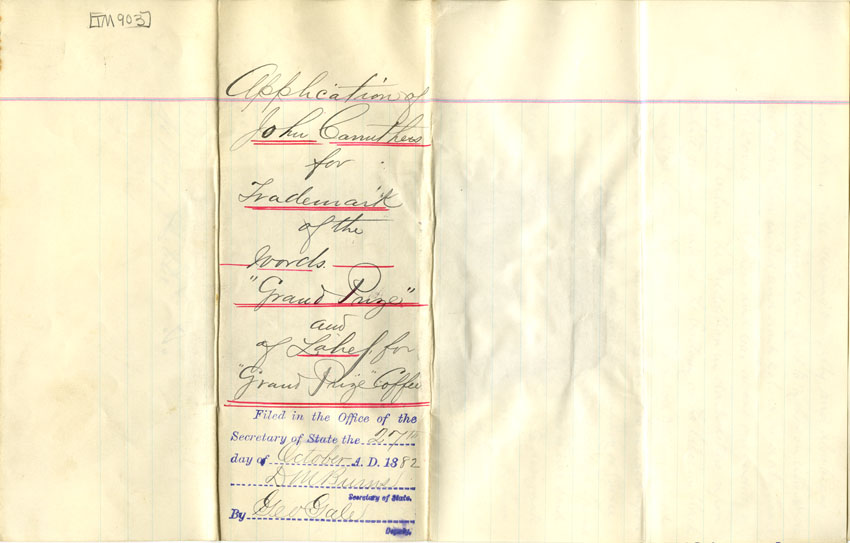 [TM903]
Application of
John Carruthers
for
Trademark
of the
Words.
"Grand Prize"
and
of Label, for
"Grand Prize" Coffee
Filed in the Office of the
Secretary of State the 27th
day of October A. D. 1882
D M Burns
Secretary of State.
By Geo Gale
Deputy.